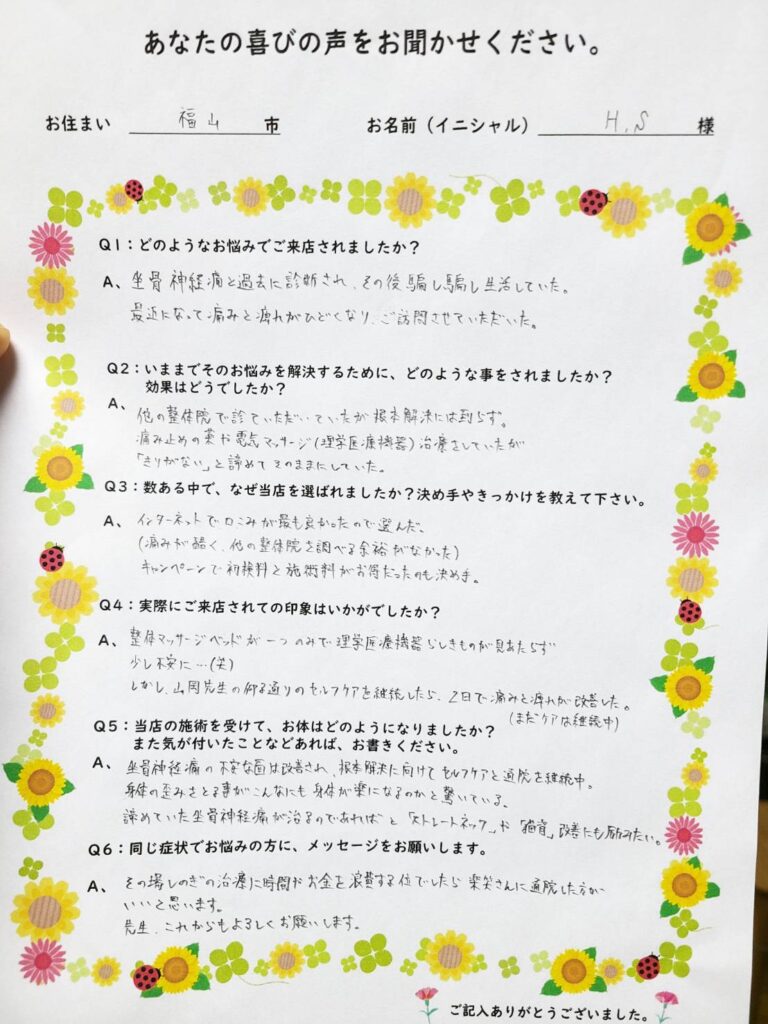 あなたの喜びの声をお聞かせください。
お住まい 福山 市 お名前（イニシャル） H.S 様
Q1：どのようなお悩みでご来店されましたか？
A、坐骨神経痛と過去に診断され、その後騙し騙し生活していた。
最近になって痛みと痺れがひどくなり、ご訪問させていただいた。
Q2：いままでそのお悩みを解決するために、どのような事をされましたか？
効果はどうでしたか？
A、他の整体院で診ていただいていたが根本解決には到らず。
痛み止めの薬や電気マッサージ(理学医療機器)治療をしていたが
「きりがない」と諦めてそのままにしていた。
Q3：数ある中で、なぜ当店を選ばれましたか？決め手やきっかけを教えて下さい。
A、インターネットで口こみが最も良かったので選んだ。
(痛みが酷く、他の整体院を調べる余裕がなかった)
キャンペーンで初検料と施術料がお得だったのも決め手。
Q4：実際にご来店されての印象はいかがでしたか？
A、整体マッサージベッドが一つのみで理学医療機器らしきものが見あたらず
少し不安に…(笑)
しかし、山岡先生の仰る通りのセルフケアを継続したら、2日で痛みと痺れが改善した。
(まだケアは継続中)
Q5：当店の施術を受けて、お体はどのようになりましたか？
また気が付いたことなどあれば、お書きください。
A、坐骨神経痛の不安な面は改善され、根本解決に向けてセルフケアと通院を継続中。
身体の歪みをとる事がこんなにも身体が楽になるのかと驚いている。
諦めていた坐骨神経痛が治るのであればと「ストレートネック」や「猫背」改善にも励みたい。
Q6：同じ症状でお悩みの方に、メッセージをお願いします。
A、その場しのぎの治療に時間やお金を浪費する位でしたら楽笑さんに通院した方が
いいと思います。
先生、これからもよろしくお願いします。
ご記入ありがとうございました。